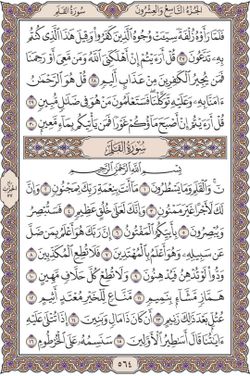 سُورَةُ القَلَمِ
الجُزْءُ التَّاسِعُ وَالعِشْرُونَ
فَلَمَّا رَأَوْهُ زُلْفَةً سِيٓـَٔتْ وُجُوهُ ٱلَّذِينَ كَفَرُوا۟ وَقِيلَ هَٰذَا ٱلَّذِى كُنتُم
بِهِۦ تَدَّعُونَ ٢٧ قُلْ أَرَءَيْتُمْ إِنْ أَهْلَكَنِىَ ٱللَّهُ وَمَن مَّعِىَ أَوْ رَحِمَنَا
فَمَن يُجِيرُ ٱلْكَٰفِرِينَ مِنْ عَذَابٍ أَلِيمٍ ٢٨ قُلْ هُوَ ٱلرَّحْمَٰنُ
ءَامَنَّا بِهِۦ وَعَلَيْهِ تَوَكَّلْنَا فَسَتَعْلَمُونَ مَنْ هُوَ فِى ضَلَٰلٍ مُّبِينٍ ٢٩
قُلْ أَرَءَيْتُمْ إِنْ أَصْبَحَ مَآؤُكُمْ غَوْرًا فَمَن يَأْتِيكُم بِمَآءٍ مَّعِينٍۭ ٣٠
سُورَةُ القَلَمِ
بِسْمِ ٱللَّهِ ٱلرَّحْمَٰنِ ٱلرَّحِيمِ
نٓ وَٱلْقَلَمِ وَمَا يَسْطُرُونَ ١ مَآ أَنتَ بِنِعْمَةِ رَبِّكَ بِمَجْنُونٍ ٢ وَإِنَّ
لَكَ لَأَجْرًا غَيْرَ مَمْنُونٍ ٣ وَإِنَّكَ لَعَلَىٰ خُلُقٍ عَظِيمٍ ٤ فَسَتُبْصِرُ
وَيُبْصِرُونَ ٥ بِأَييِّكُمُ ٱلْمَفْتُونُ ٦ إِنَّ رَبَّكَ هُوَ أَعْلَمُ بِمَن ضَلَّ
عَن سَبِيلِهِۦ وَهُوَ أَعْلَمُ بِٱلْمُهْتَدِينَ ٧ فَلَا تُطِعِ ٱلْمُكَذِّبِينَ ٨
وَدُّوا۟ لَوْ تُدْهِنُ فَيُدْهِنُونَ ٩ وَلَا تُطِعْ كُلَّ حَلَّافٍ مَّهِينٍ ١٠
هَمَّازٍ مَّشَّآءٍۭ بِنَمِيمٍ ١١ مَّنَّاعٍ لِّلْخَيْرِ مُعْتَدٍ أَثِيمٍ ١٢
عُتُلٍّۭ بَعْدَ ذَٰلِكَ زَنِيمٍ ١٣ أَن كَانَ ذَا مَالٍ وَبَنِينَ ١٤ إِذَا تُتْلَىٰ عَلَيْهِ
ءَايَٰتُنَا قَالَ أَسَٰطِيرُ ٱلْأَوَّلِينَ ١٥ سَنَسِمُهُۥ عَلَى ٱلْخُرْطُومِ ١٦
٥٦٤